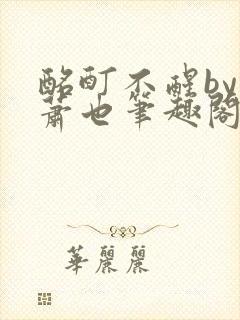 酩酊不醒by
萧也笔趣阁
華麗麗